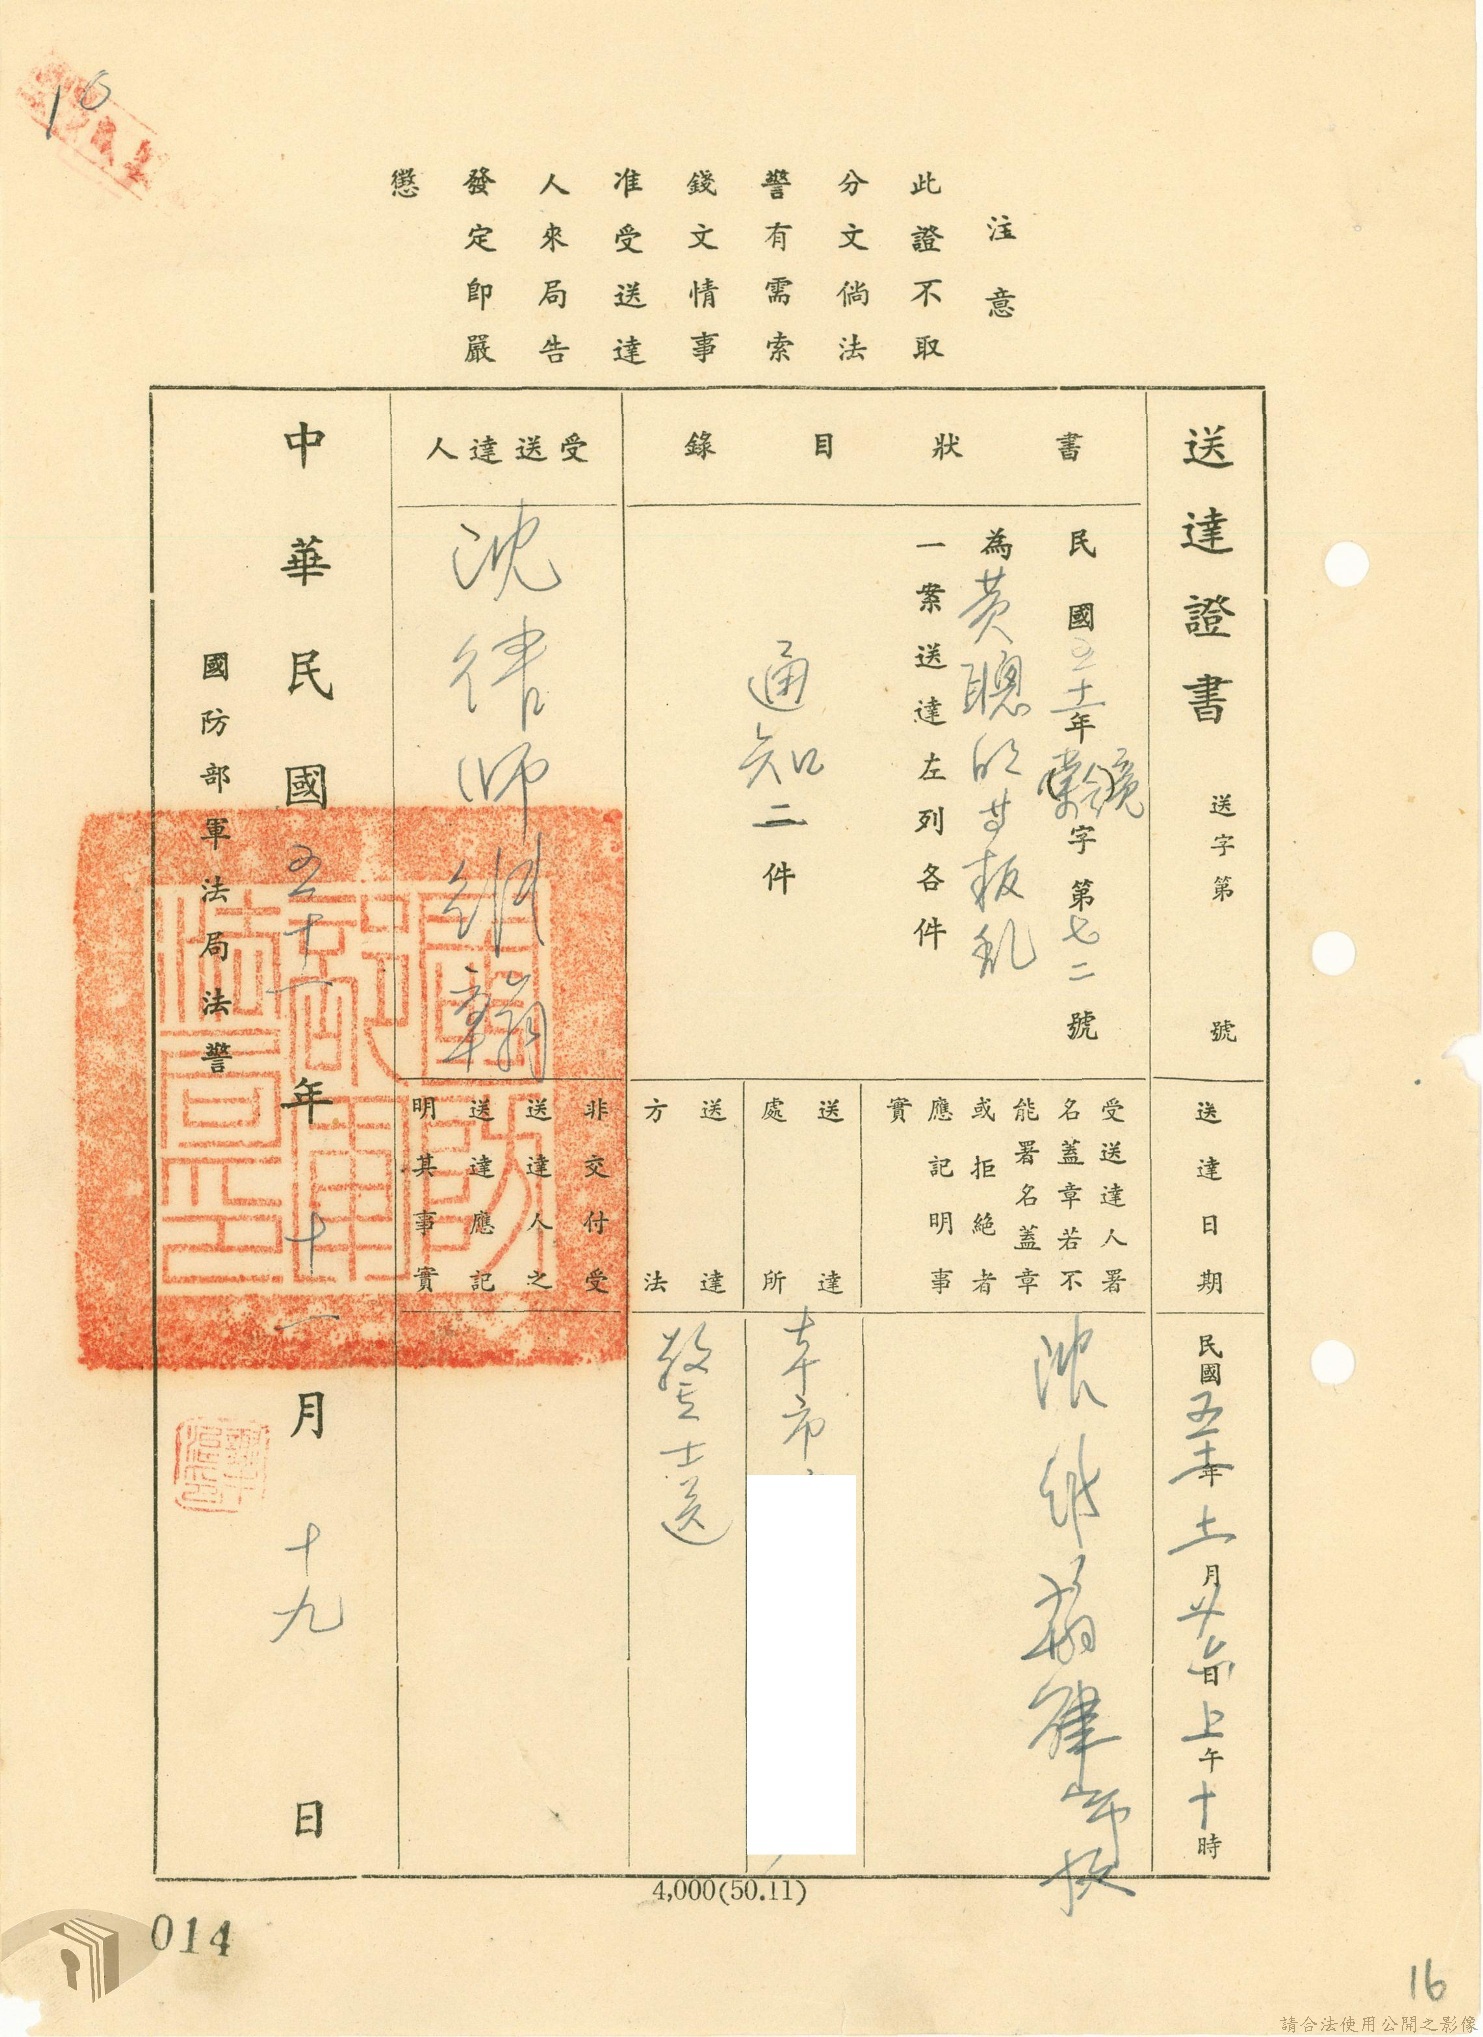 注意
此證不取
分文倘法
警有需索
錢文情事
准受送達
人來局告
發定即嚴
懲
送達證書
送字第 號
書狀目錄
民國五十一年 字第七二號
為黃聰明等叛亂
一案送達左列各件
通知二件
受送達人
沈律師維翰
送達日期
民國五十一年十一月廿六日上午十時
受送達人署
名蓋章若不
能署名蓋章
或拒絕者
應記明事
實
沈維翰律師
送達
處所
本市
送達
方法
警士送
非交付受
送達人之
送達應記
明其事實
中華民國五十一年十一月十九日
國防部軍法局法警
4,000(50.11)
014
16
請合法使用公開之影像